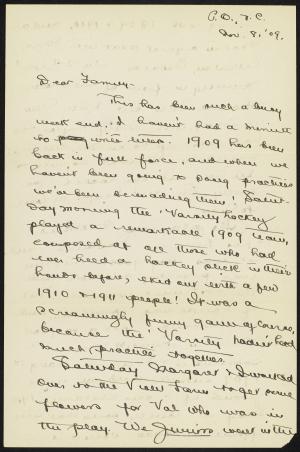 P.O., B.C.
Nov. 8, '09.
Dear Family -
This has been such a busy
week end, I haven't had a minute
to write letters. 1909 has been
back in full force, and when we
haven't been going to song practices
we've been serenading them! Satur-
day morning the 'Varsity hockey
played a remarkable 1909 team,
composed of all those who had
ever held a hockey stick in their
hands before, eked out with a few
1910 & 1911 people! It was a
screamingly funny game of course,
because the 'Varsity hadn't had
much practice together.
Saturday Margaret & I walked
over to the View Farm to get some
flowers for Val who was in
the play. We Juniors went in the